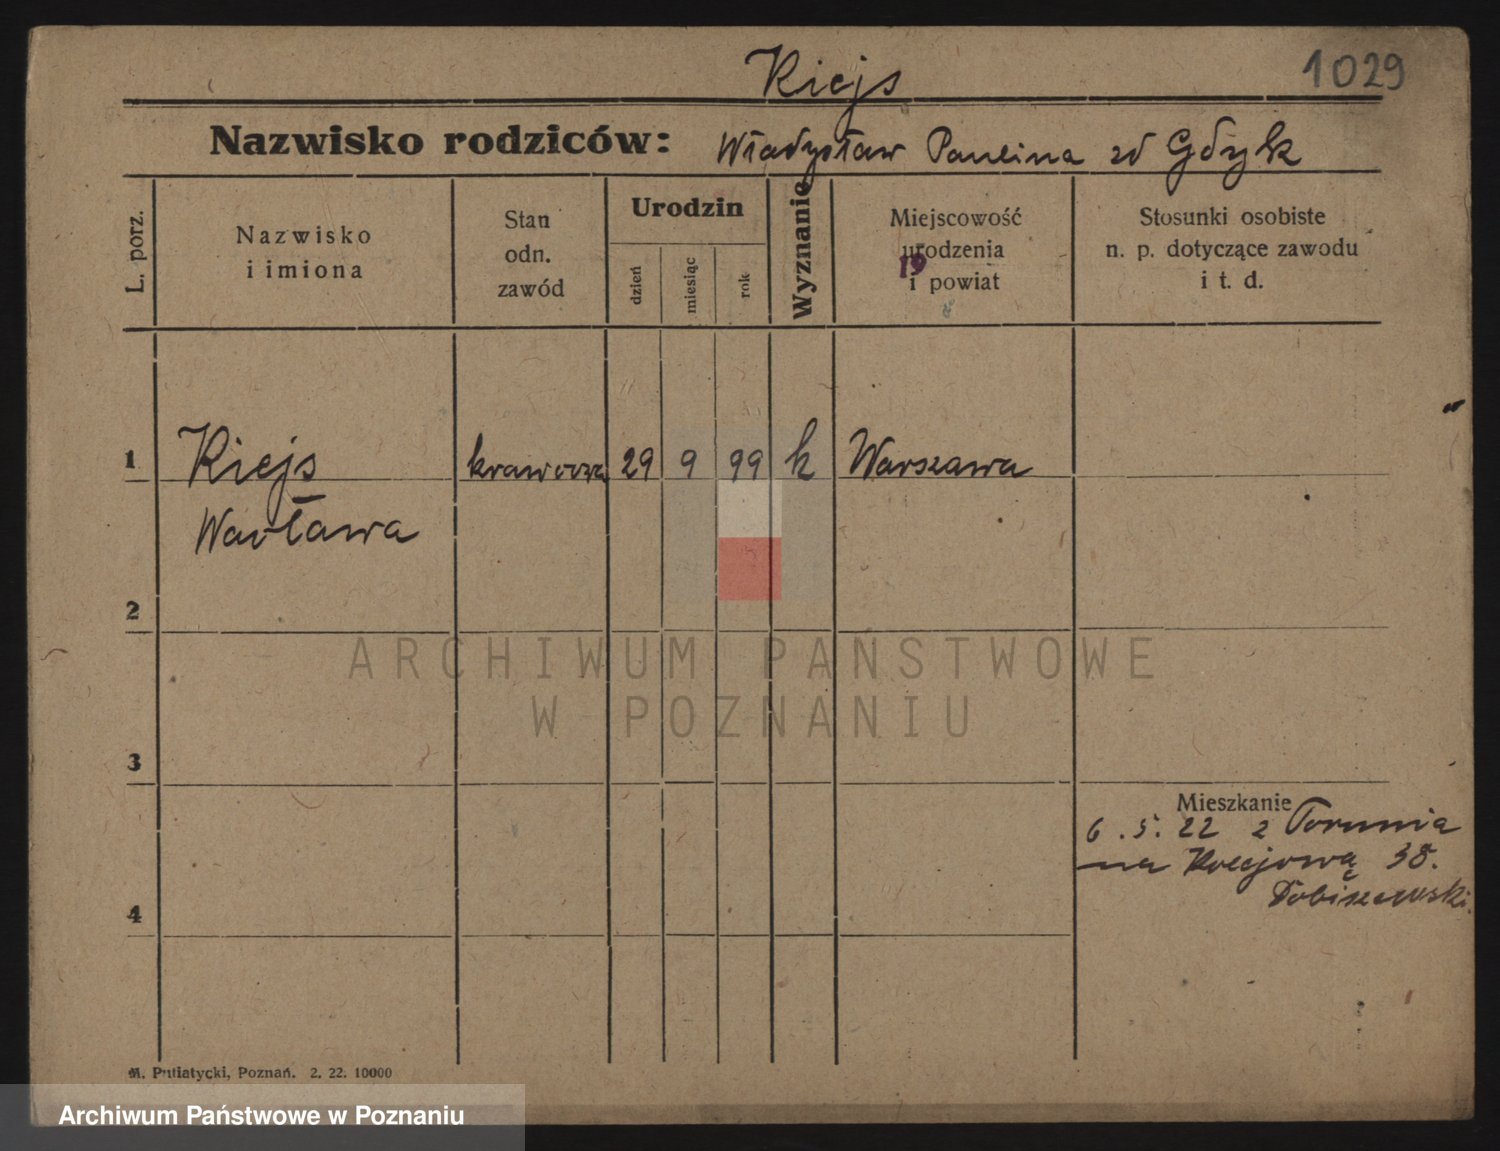 Kiejs
1029
Nazwisko rodziców: Władysław Paulina zd Gdyk
L. porz.
Nazwisko
i imiona
Stan
odn.
zawód
Urodzin
dzień
miesiąc
rok
Wyznanie
Miejscowość
urodzenia
19
i powiat
Stosunki osobiste
n. p. dotyczące zawodu
i t. d.
1 Kiejs krawcowa 29 9 99 k Warszawa
Wacława
2
ARCHIWUM PAŃSTWOWE
W POZNANIU
3
Mieszkanie
6.5.22 z Torunia
na Kolejową 38.
Tobiszewski.
4
M. Putiatycki, Poznań. 2. 22. 10000
Archiwum Państwowe w Poznaniu